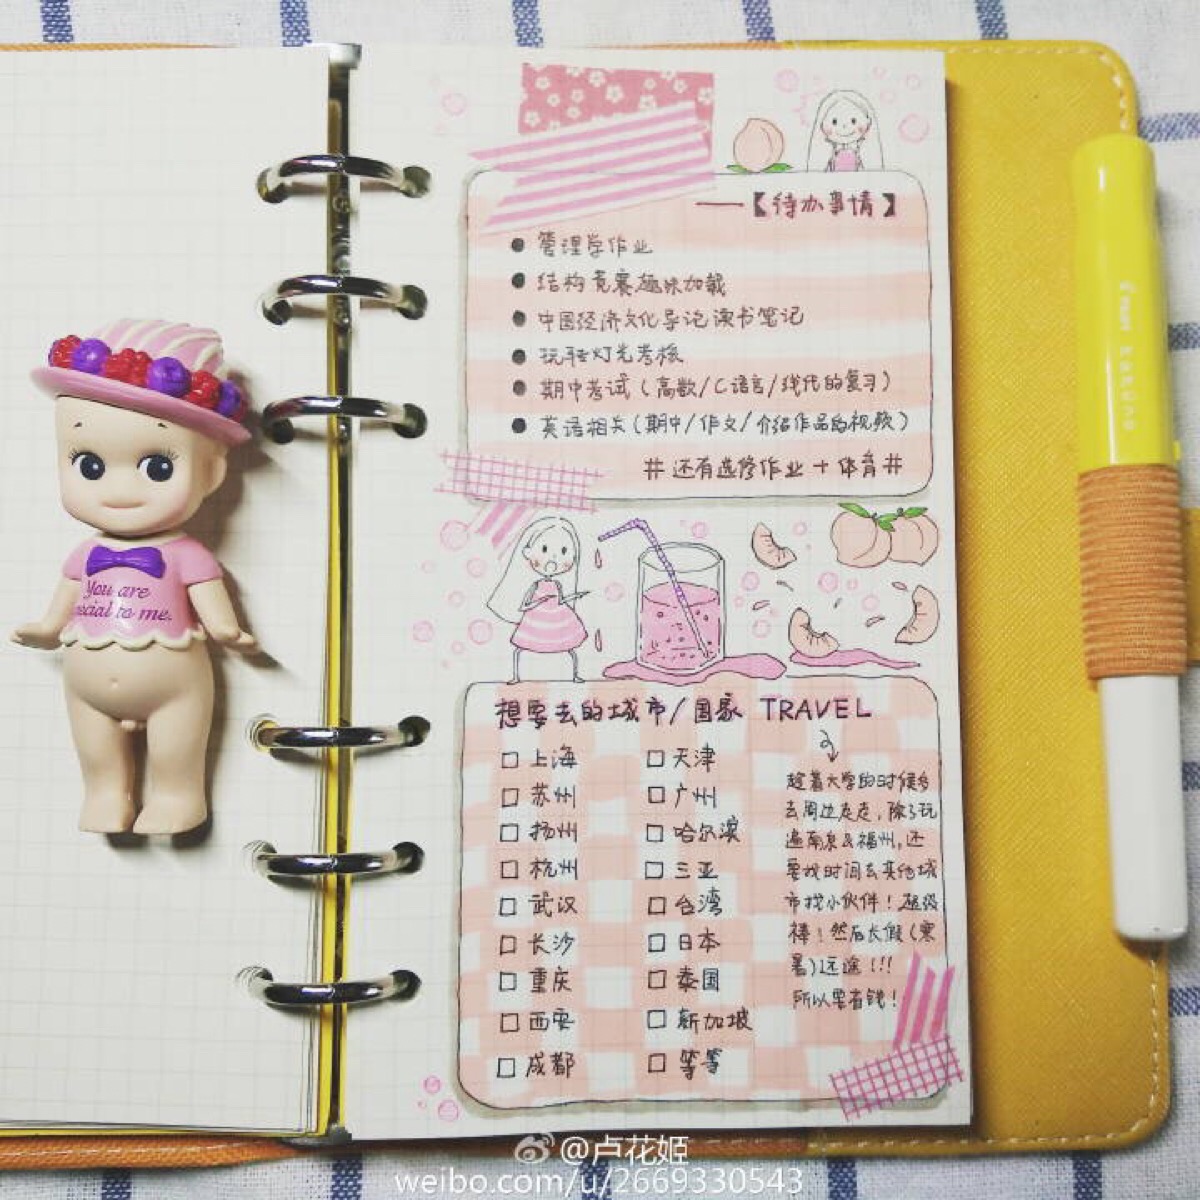 ——【待办事情】
● 管理学作业
● 结构竞赛趣味加载
● 中国经济文化导论读书笔记
● 玩转灯光考核
● 期中考试(高数/C语言/线代的复习)
● 英语相关(期中/作文/介绍作品的视频)
#还有选修作业+体育#
You are
special to me.
想要去的城市/国家 TRAVEL
□ 上海 □ 天津
□ 苏州 □ 广州
□ 扬州 □ 哈尔滨
□ 杭州 □ 三亚
□ 武汉 □ 台湾
□ 长沙 □ 日本
□ 重庆 □ 泰国
□ 西安 □ 新加坡
□ 成都 □ 等等
趁着大学的时候多
去周边走走,除了玩
遍南京&福州,还
要找时间去其他城
市找小伙伴!超级
棒!然后长假(寒
暑)远途!!!
所以要有钱!
@卢花姬
weibo.com/u/2669330543